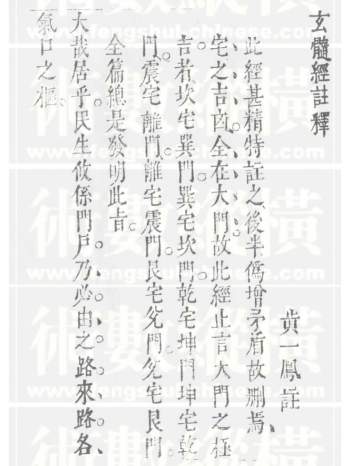 玄髓經註釋
黄一鳳註
此經甚精特註之後半僞增矛盾故刪焉
宅之吉凶全在大門故此經止言大門之極
吉者坎宅巽門巽宅坎門乾宅坤門坤宅乾
門震宅離門離宅震門艮宅兊門兊宅艮門
全篇總是發明此旨
大哉居乎民生攸係門戸乃必由之路來路各
氣口之樞
術數縱橫
www.fengshui-chinese.com